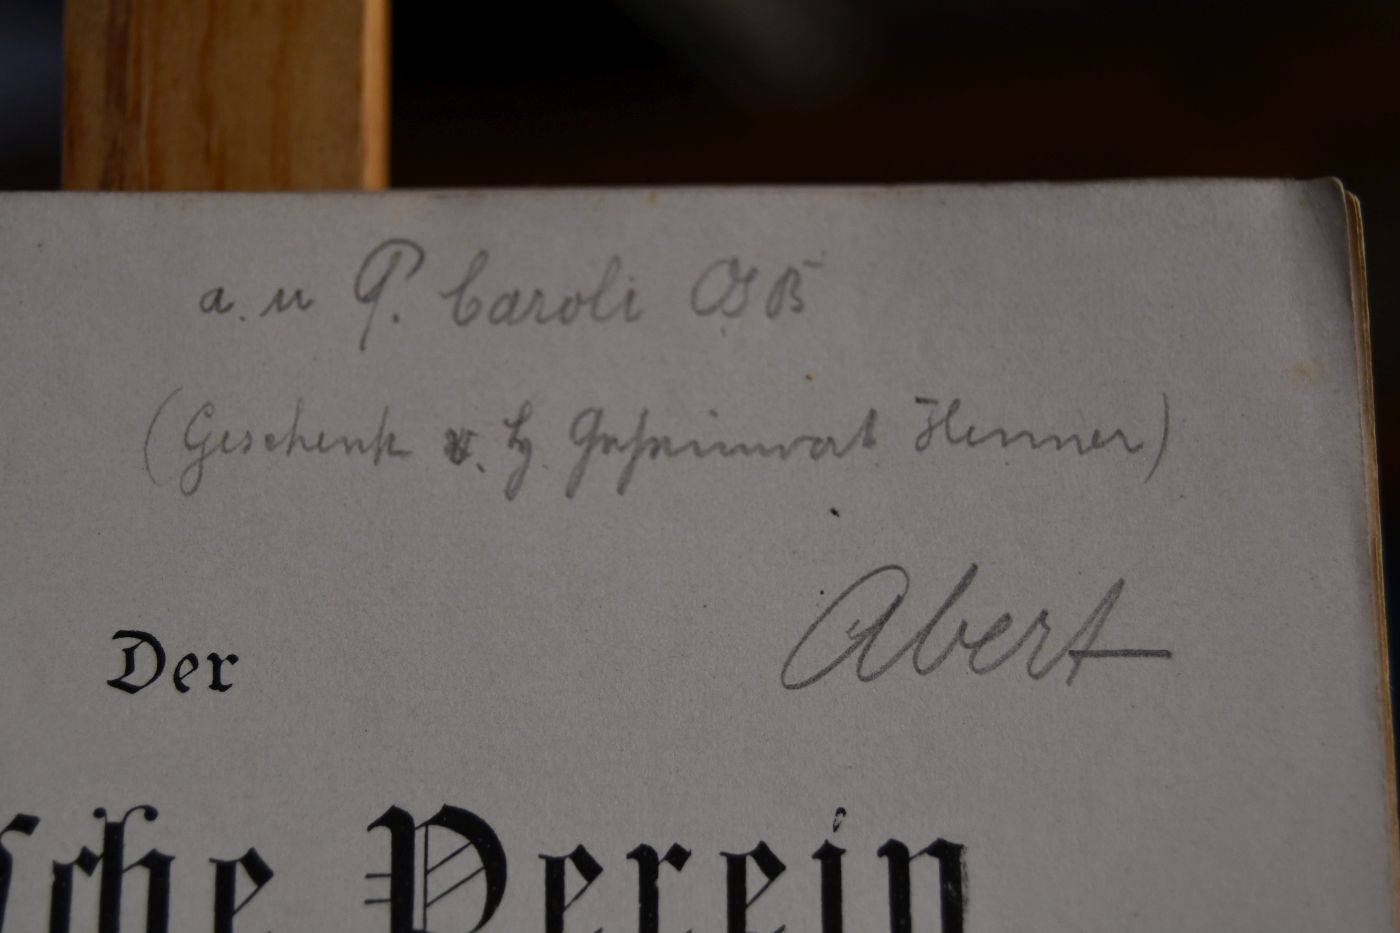 a. u P. Caroli OSB
(Geschenk v. H. Geheimrat Henner)
Abert
Der
sche Verein